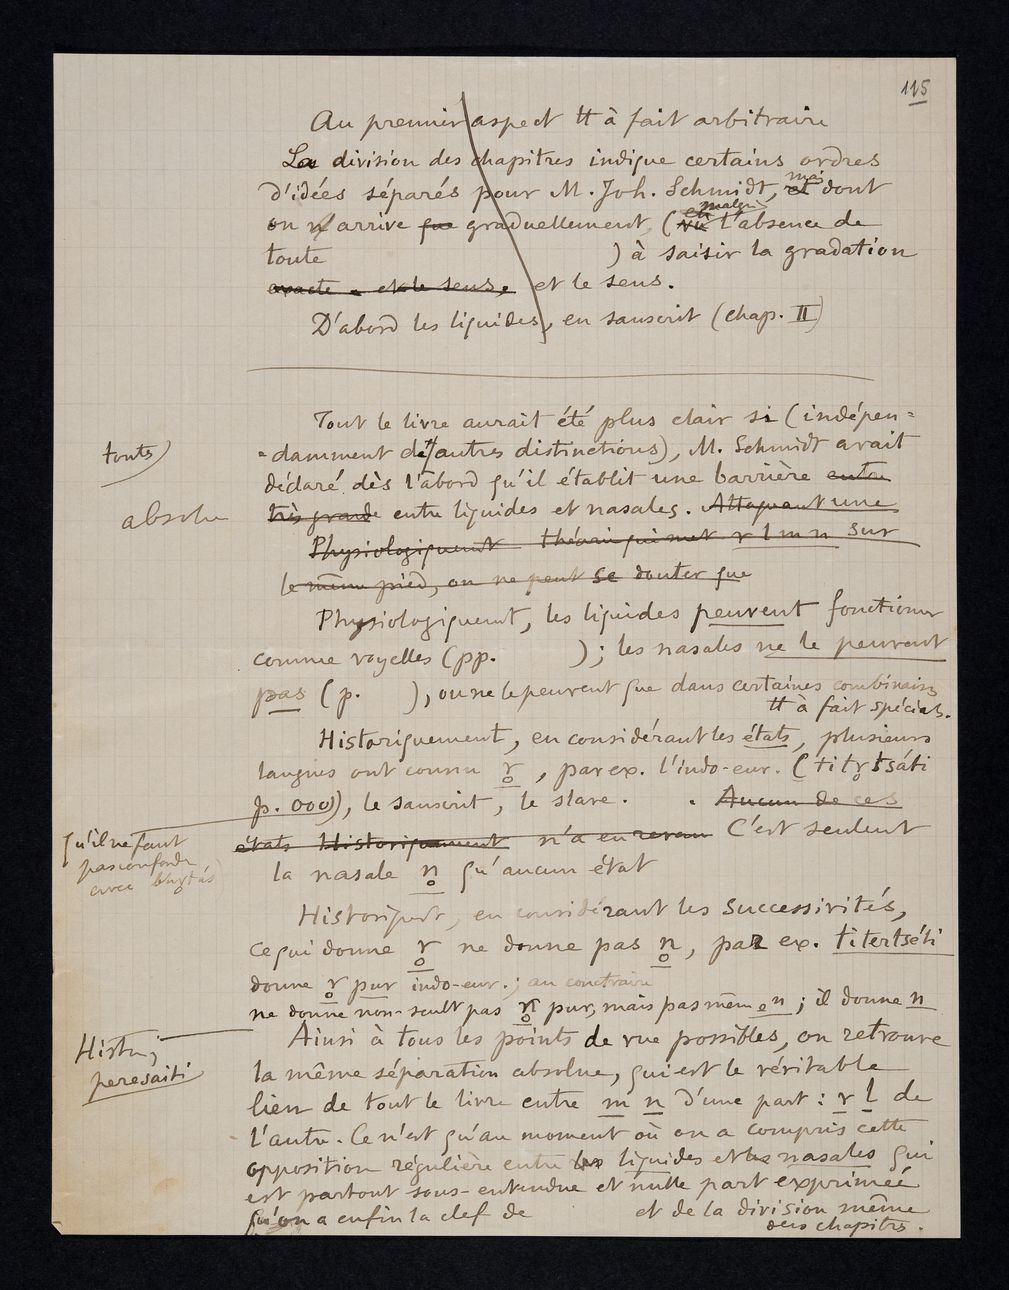 115
Au premier aspect tt à fait arbitraire
La division des chapitres indique certains ordres
d'idées séparés pour M. Joh. Schmidt, et mais dont
on n'arrive que graduellement, (vu en malgré l'absence de
toute ) à saisir la gradation
exacte - et le sens, et le sens.
D'abord les liquides, en sanscrit (chap. II)
Tout le livre aurait été plus clair si (indépen=
toutes
=damment de tt autres distinctions), M. Schmidt avait
déclaré dès l'abord qu'il établit une barrière entre
absolue
très grande entre liquides et nasales. Attaquant une
Physiologiquement théorie qui met r l m n sur
le même pied, on ne peut se douter que
Physiologiquemt, les liquides peuvent fonctionner
comme voyelles (pp. ); les nasales ne le peuvent
pas (p. ), ou ne le peuvent que dans certaines combinaisons
tt à fait spéciales.
Historiquement, en considérant les états, plusieurs
langues ont connu r̥, par ex. l'indo-eur. (titr̥tsáti
p. 000), le sanscrit, le slave. . Aucun de ces
qu'il ne faut
pas confondre
avec bhr̥tás)
états Historiquement n'a eu C'est seulemt
la nasale n̥ qu'aucun état
Historiquemt, en considérant les successivités,
ce qui donne r̥ ne donne pas n̥, par ex. titertséti
donne r̥ pur indo-eur.; au contraire
ne donne non-seult pas n̥ pur, mais pas même en; il donne n
Histor;
peresaiti
Ainsi à tous les points de vue possibles, on retrouve
la même séparation absolue, qui est le véritable
lien de tout le livre entre m n d'une part: r l de
l'autre. Ce n'est qu'au moment où on a compris cette
opposition régulière entre les liquides et les nasales qui
est partout sous-entendue et nulle part exprimée
qu'on a enfin la clef de et de la division même
des chapitres.